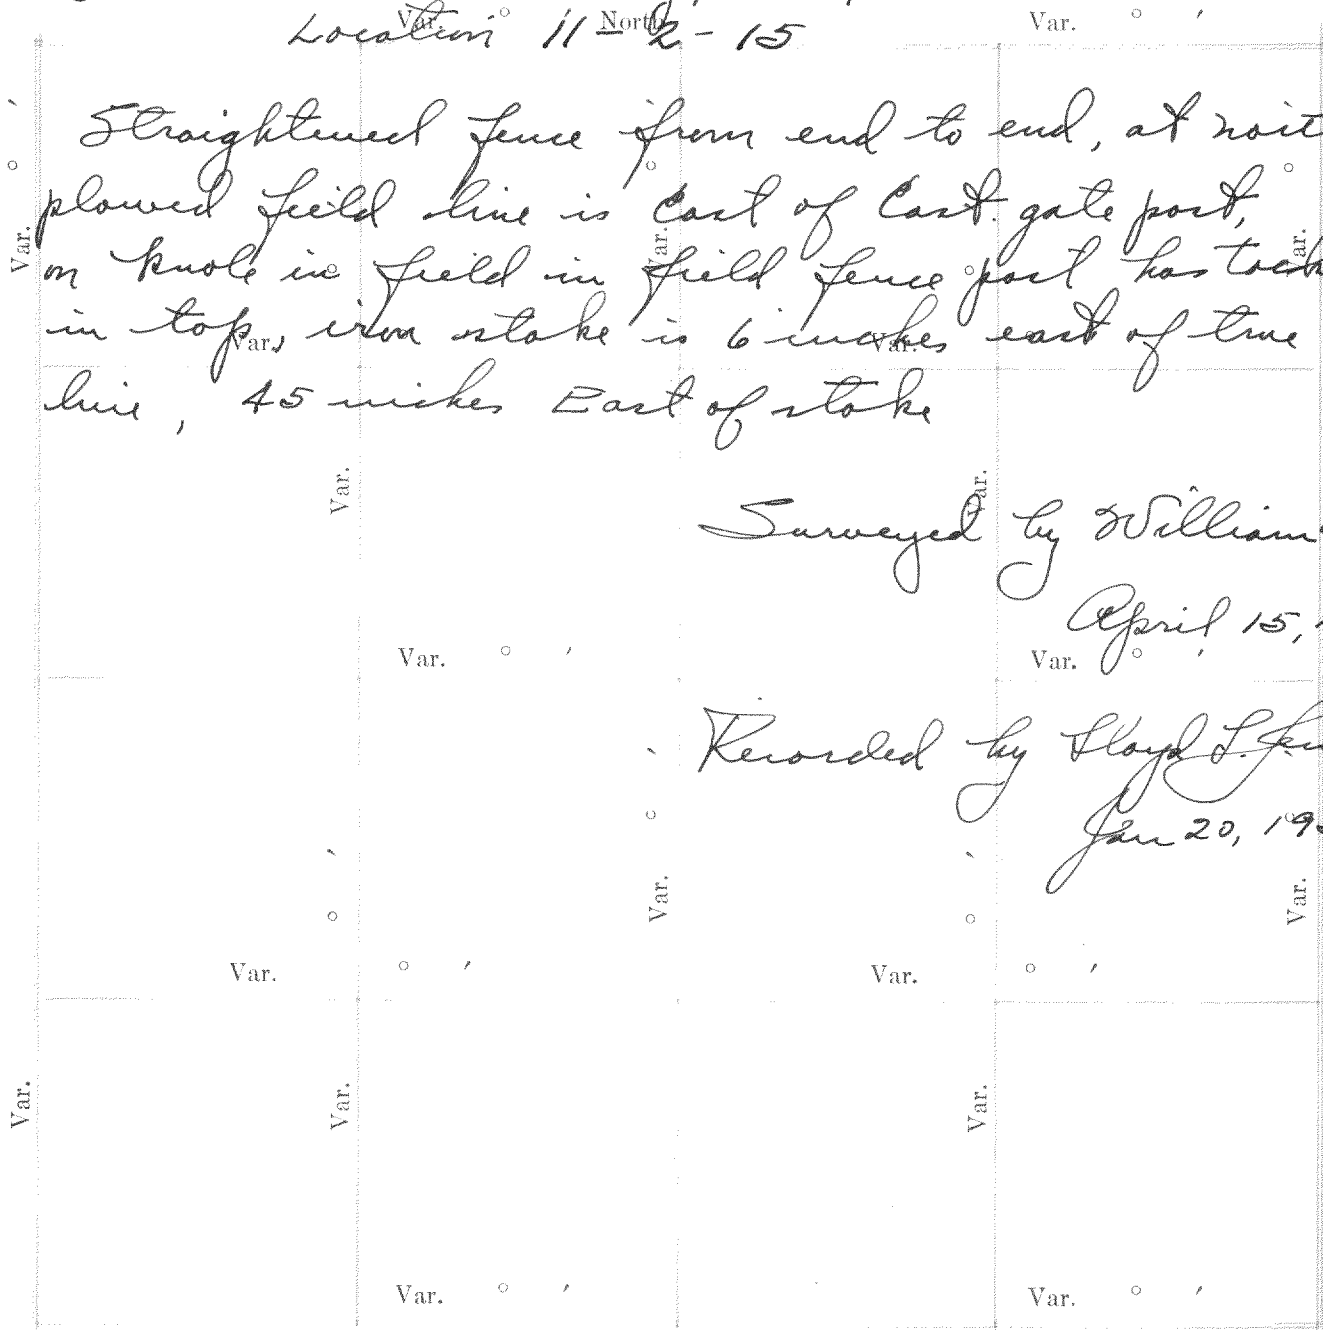 Var. ° North Var. ° '
Location 11-2-15
Straightened fence from end to end, at
plowed field line is East of East gate post,
on knole in field in field fence post has tack
in top, iron stake is 6 inches east of true
Var. Var.
line, 45 inches East of stake
Surveyed by William
April 15,
Var. ° ' Var. ° '
Recorded by Lloyd L.
Jan 20, 19
Var. ° ' Var. ° '
Var. ° ' Var. ° '
Var.
Var.
Var.
Var.
Var.
Var.
Var.
Var.
Var.
Var.